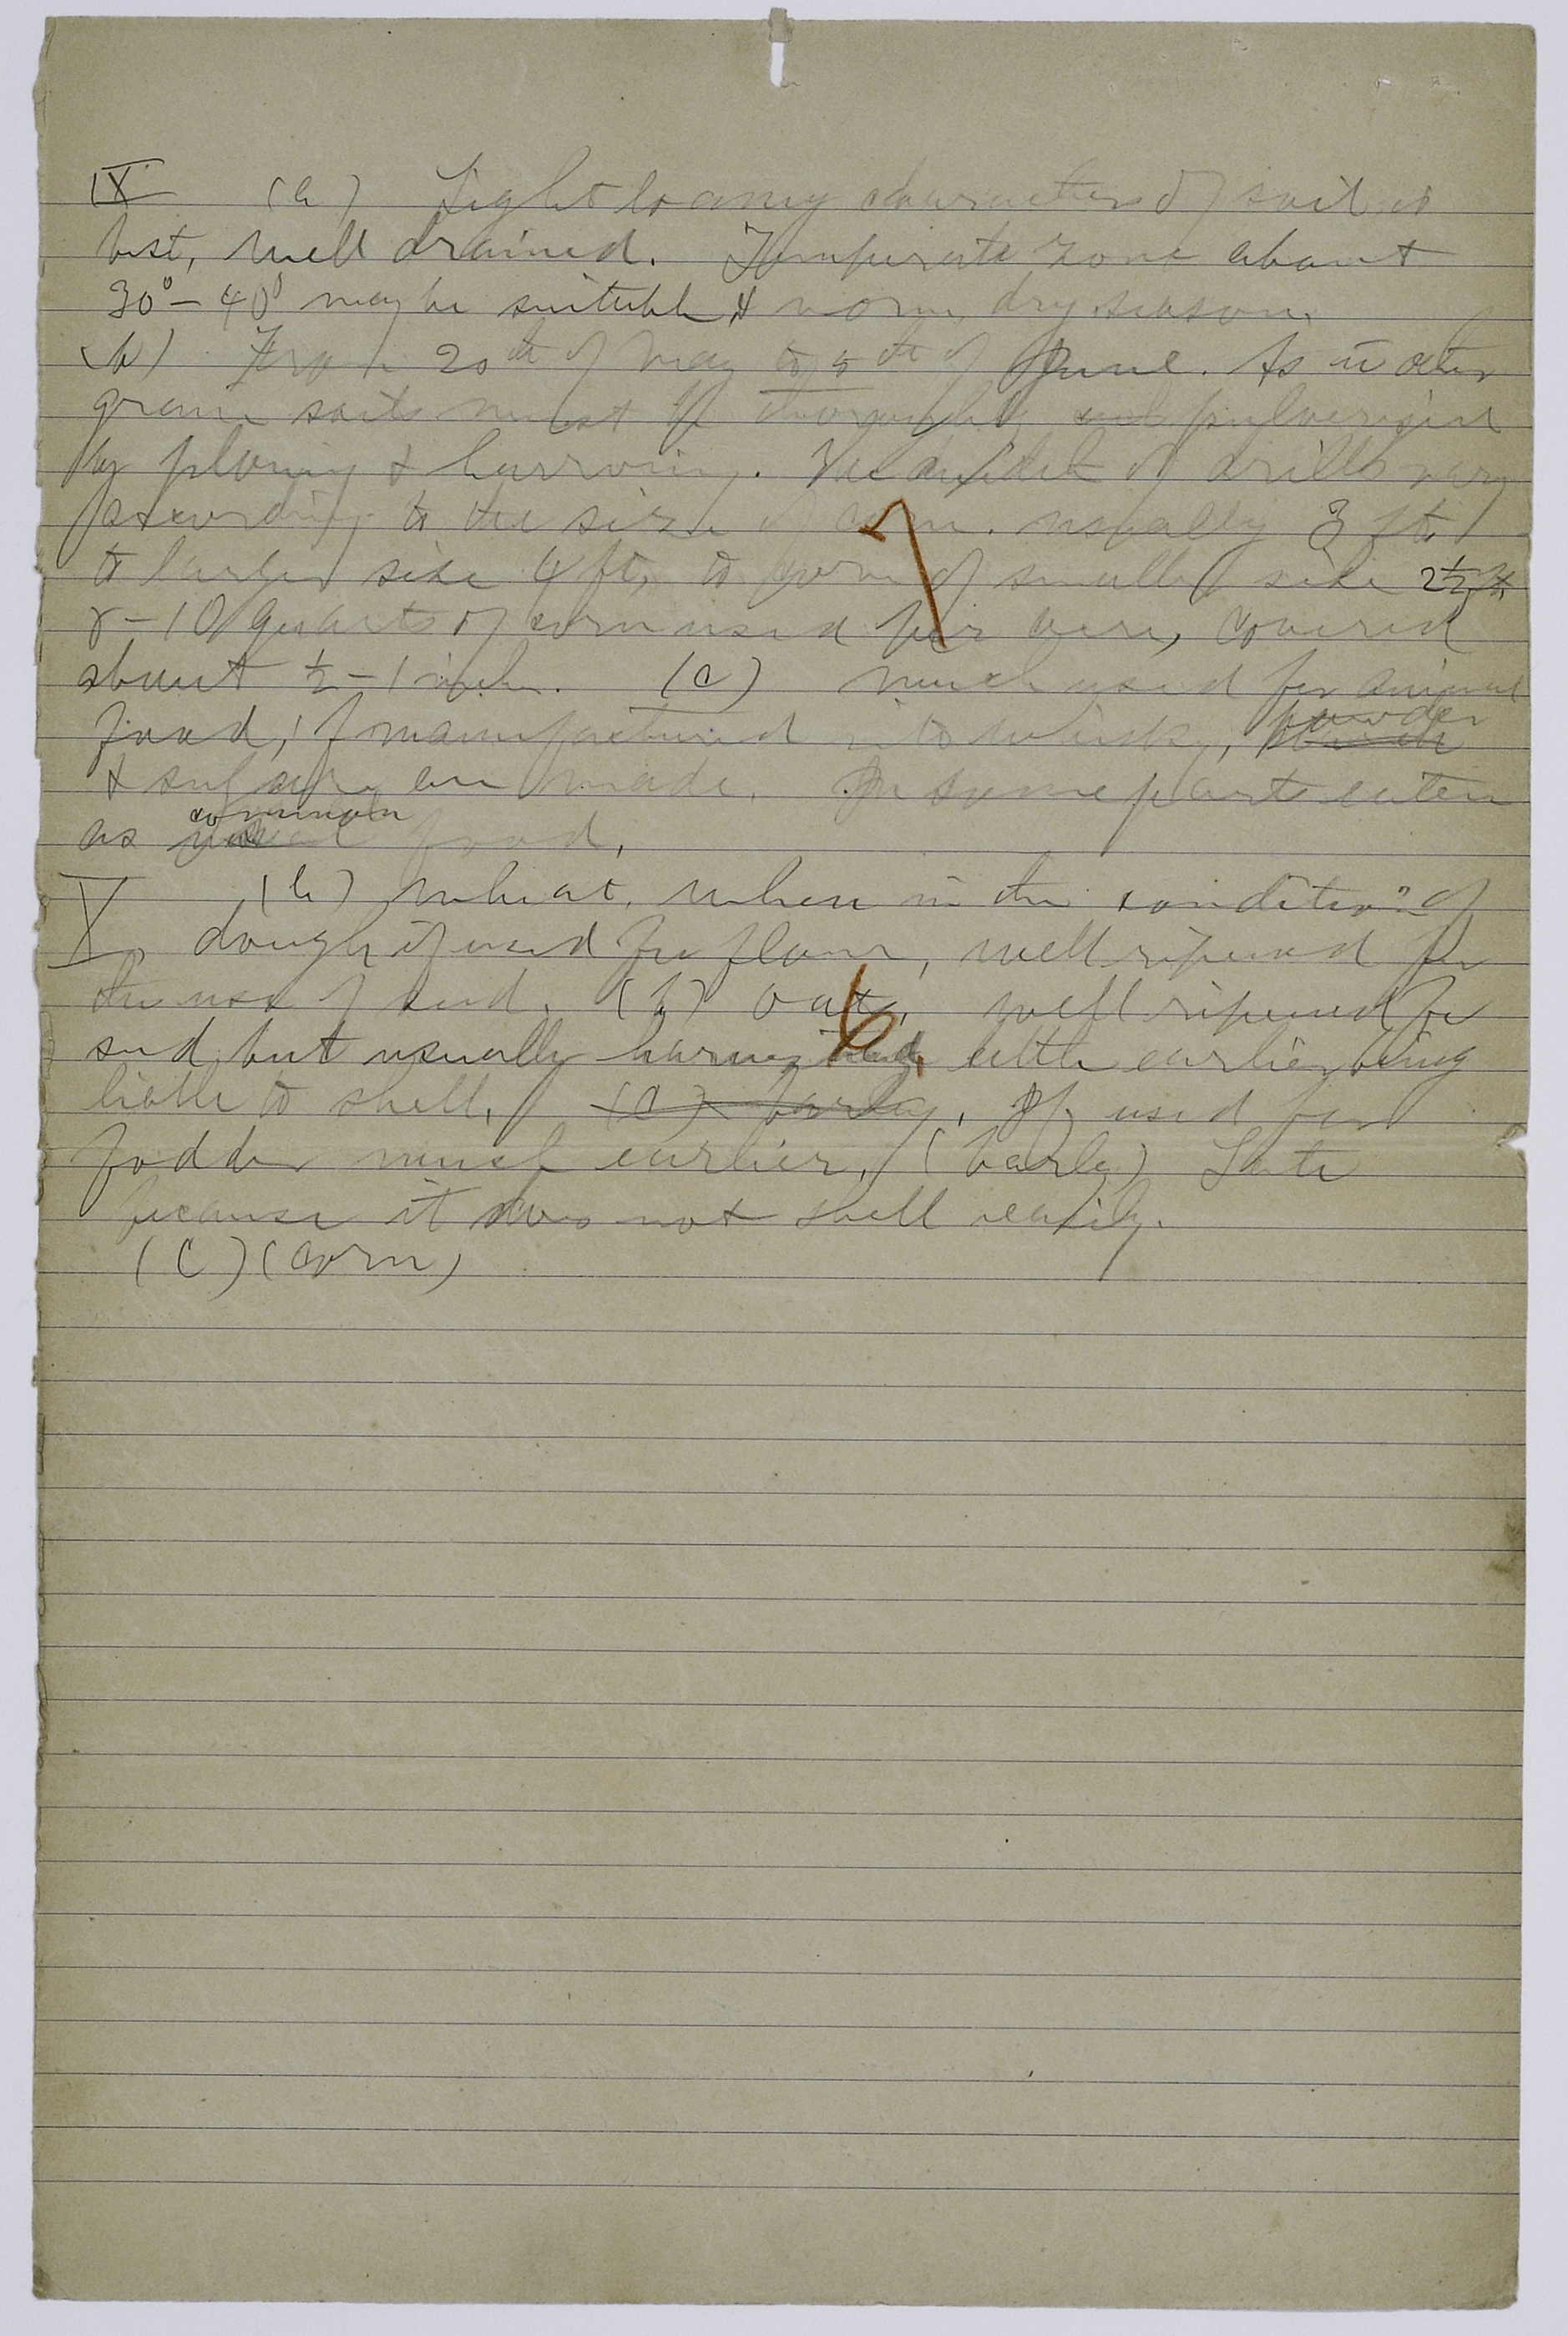 IX (a) Light loamy character of soil is
best, well drained. Temperate zone about
30°-40° may be suitable & worm, dry season.
(b) From 20th of May to 5th of June. As in other
grain soils must be thoroughly pulverized
by plowing & harrowing. The of drills vary
according to the size of corn. usually 3 ft.
to larger size 4 ft, to corn of smaller size 2½ ft.
8-10 quarts of corn used per acre, covered
about ½-1 inch. (c) much used for animal
food, manufactured into whisky, powder
& sugar are made. In some parts eaten
as common food.
7
X (a) wheat, when in the condition of
dough if used for flour, well ripened for
the use of seed. (b) oats, well ripened for
seed but usually little earlier being
liable to shell. (c) barley. If used for
fodder much earlier. (barley) Late
because it does not shell easily.
(c) (corn)
6